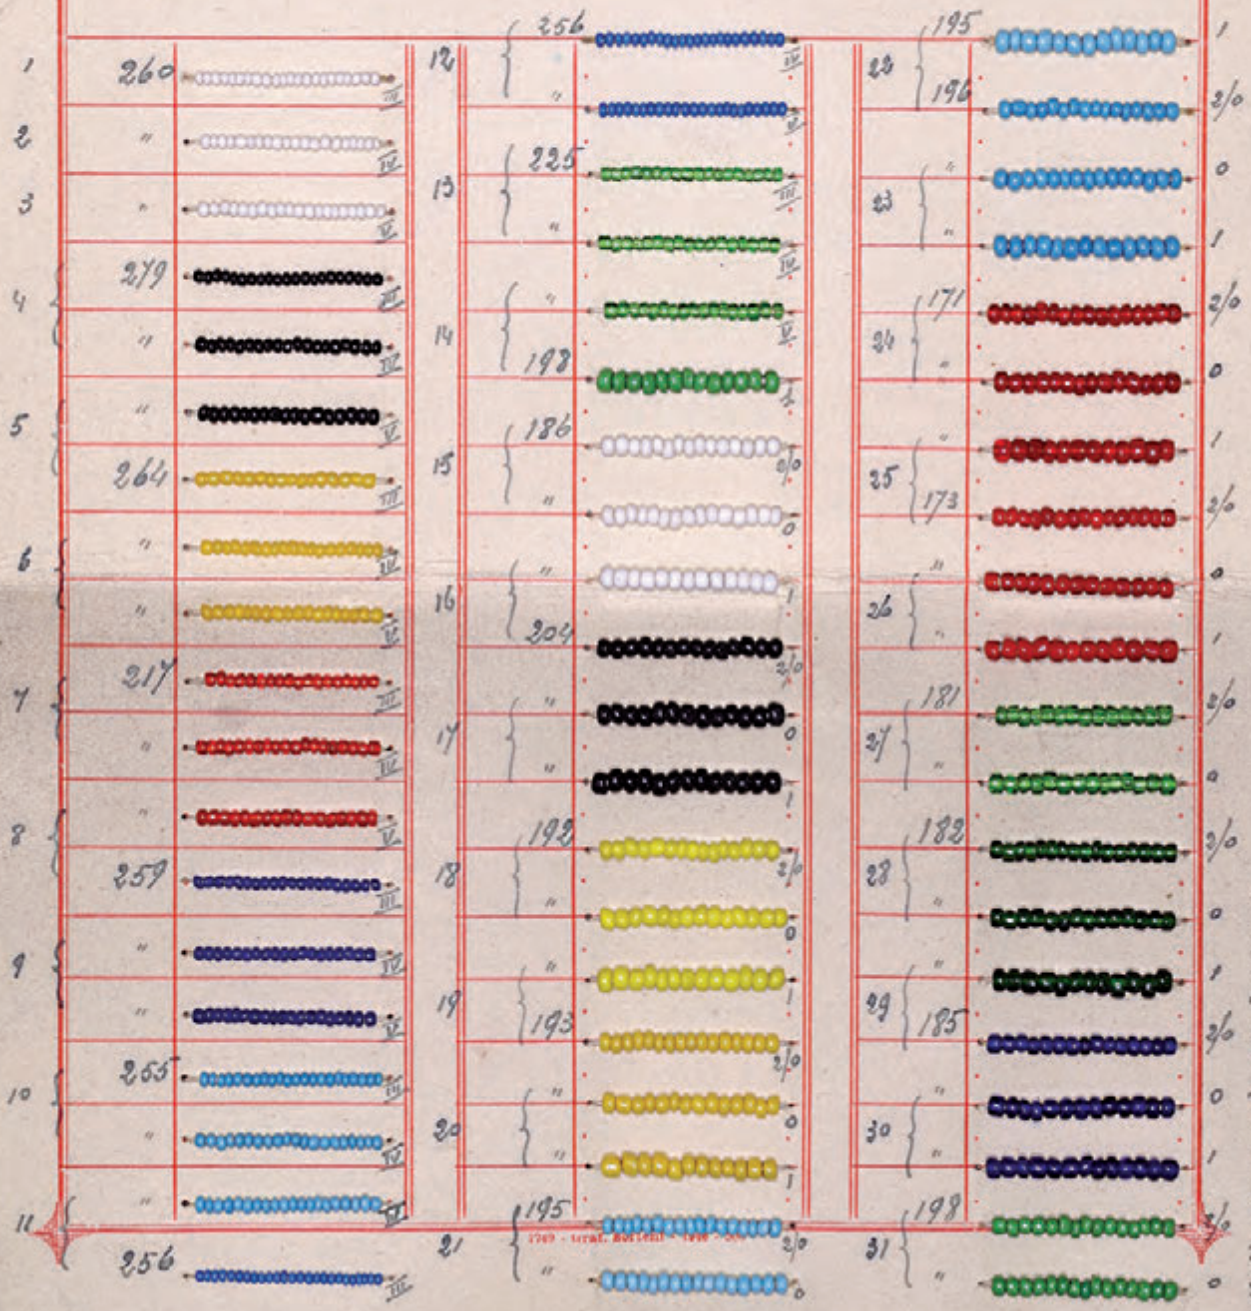 1 260 III
2 " IV
3 " V
4 279 III
" IV
5 " V
264 III
6 " IV
" V
7 217 III
" IV
8 " V
259 III
9 " IV
" V
10 255 III
" IV
11 " V
256 III
12 256 IV
" V
13 225 III
" IV
14 " V
198 1
15 186 2/0
" 0
16 " 1
204 2/0
17 " 0
" 1
18 192 2/0
" 0
19 " 1
193 2/0
20 " 0
" 1
21 195 2/0
" 0
22 195 1
196 2/0
23 " 0
" 1
24 171 2/0
" 0
25 " 1
173 2/0
26 " 0
" 1
27 181 2/0
" 0
28 182 2/0
" 0
29 " 1
185 2/0
30 " 0
" 1
31 198 2/0
" 0